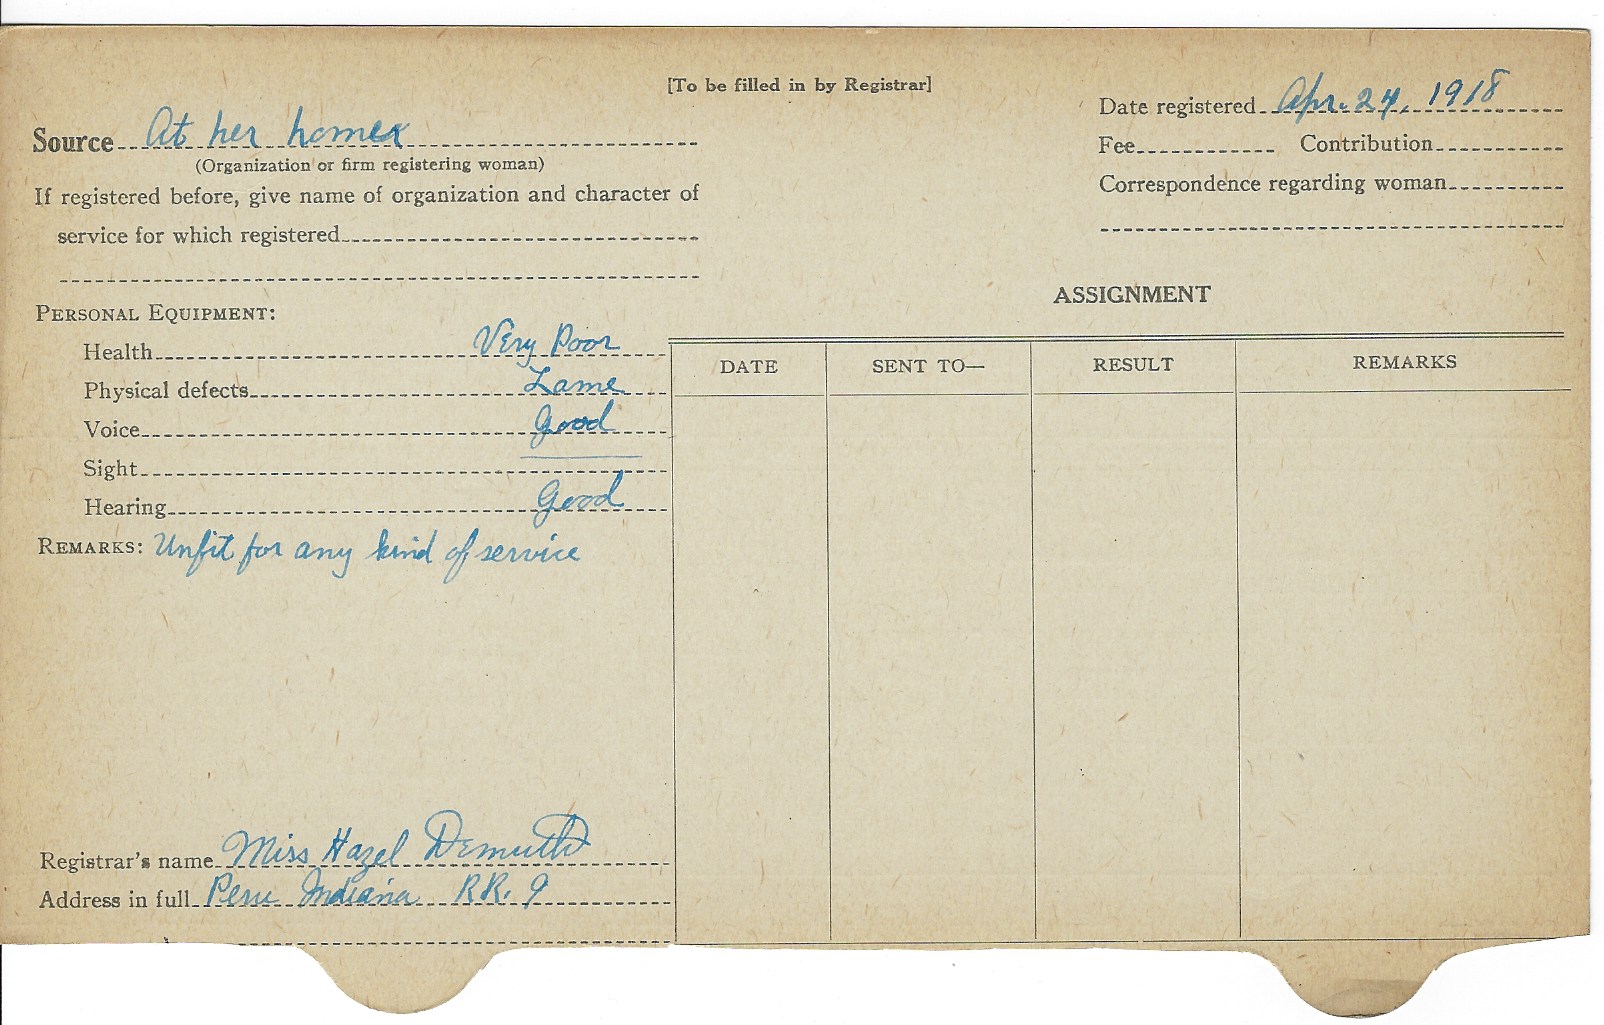 [To be filled in by Registrar]
Source At her home
(Organization or firm registering woman)
If registered before, give name of organization and character of
service for which registered
PERSONAL EQUIPMENT:
Health Very Poor
Physical defects Lame
Voice Good
Sight
Hearing Good
REMARKS: Unfit for any kind of service
Registrar's name Miss Hazel Demuth
Address in full Peru Indiana RR. 9
Date registered Apr. 24, 1918
Fee Contribution
Correspondence regarding woman
ASSIGNMENT
DATE SENT TO— RESULT REMARKS